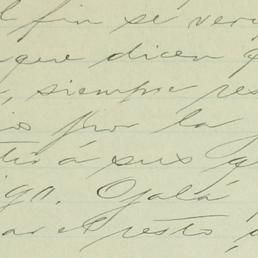 l fin se ver
que dicen q
, siempre res
io por la
tir á sus q
igo. Ojalá
ar el resto,